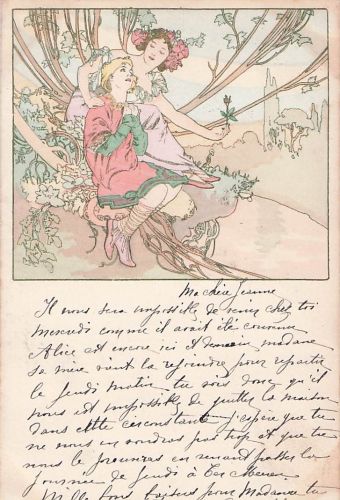 Ma chère Jeanne
Il nous sera impossible de venir chez toi
mercredi comme il avait été convenu
Alice est encore ici et demain madame
se mère vont la rejoindre pour repartir
le jeudi matin tu vois donc qu'il
nous est impossible de quitter la maison
dans cette circonstance j'espère que tu
ne nous en voudras pas trop et que tu
nous le prouveras en venant passer la
journée de jeudi à
Mille bons baisers pour Madame tu